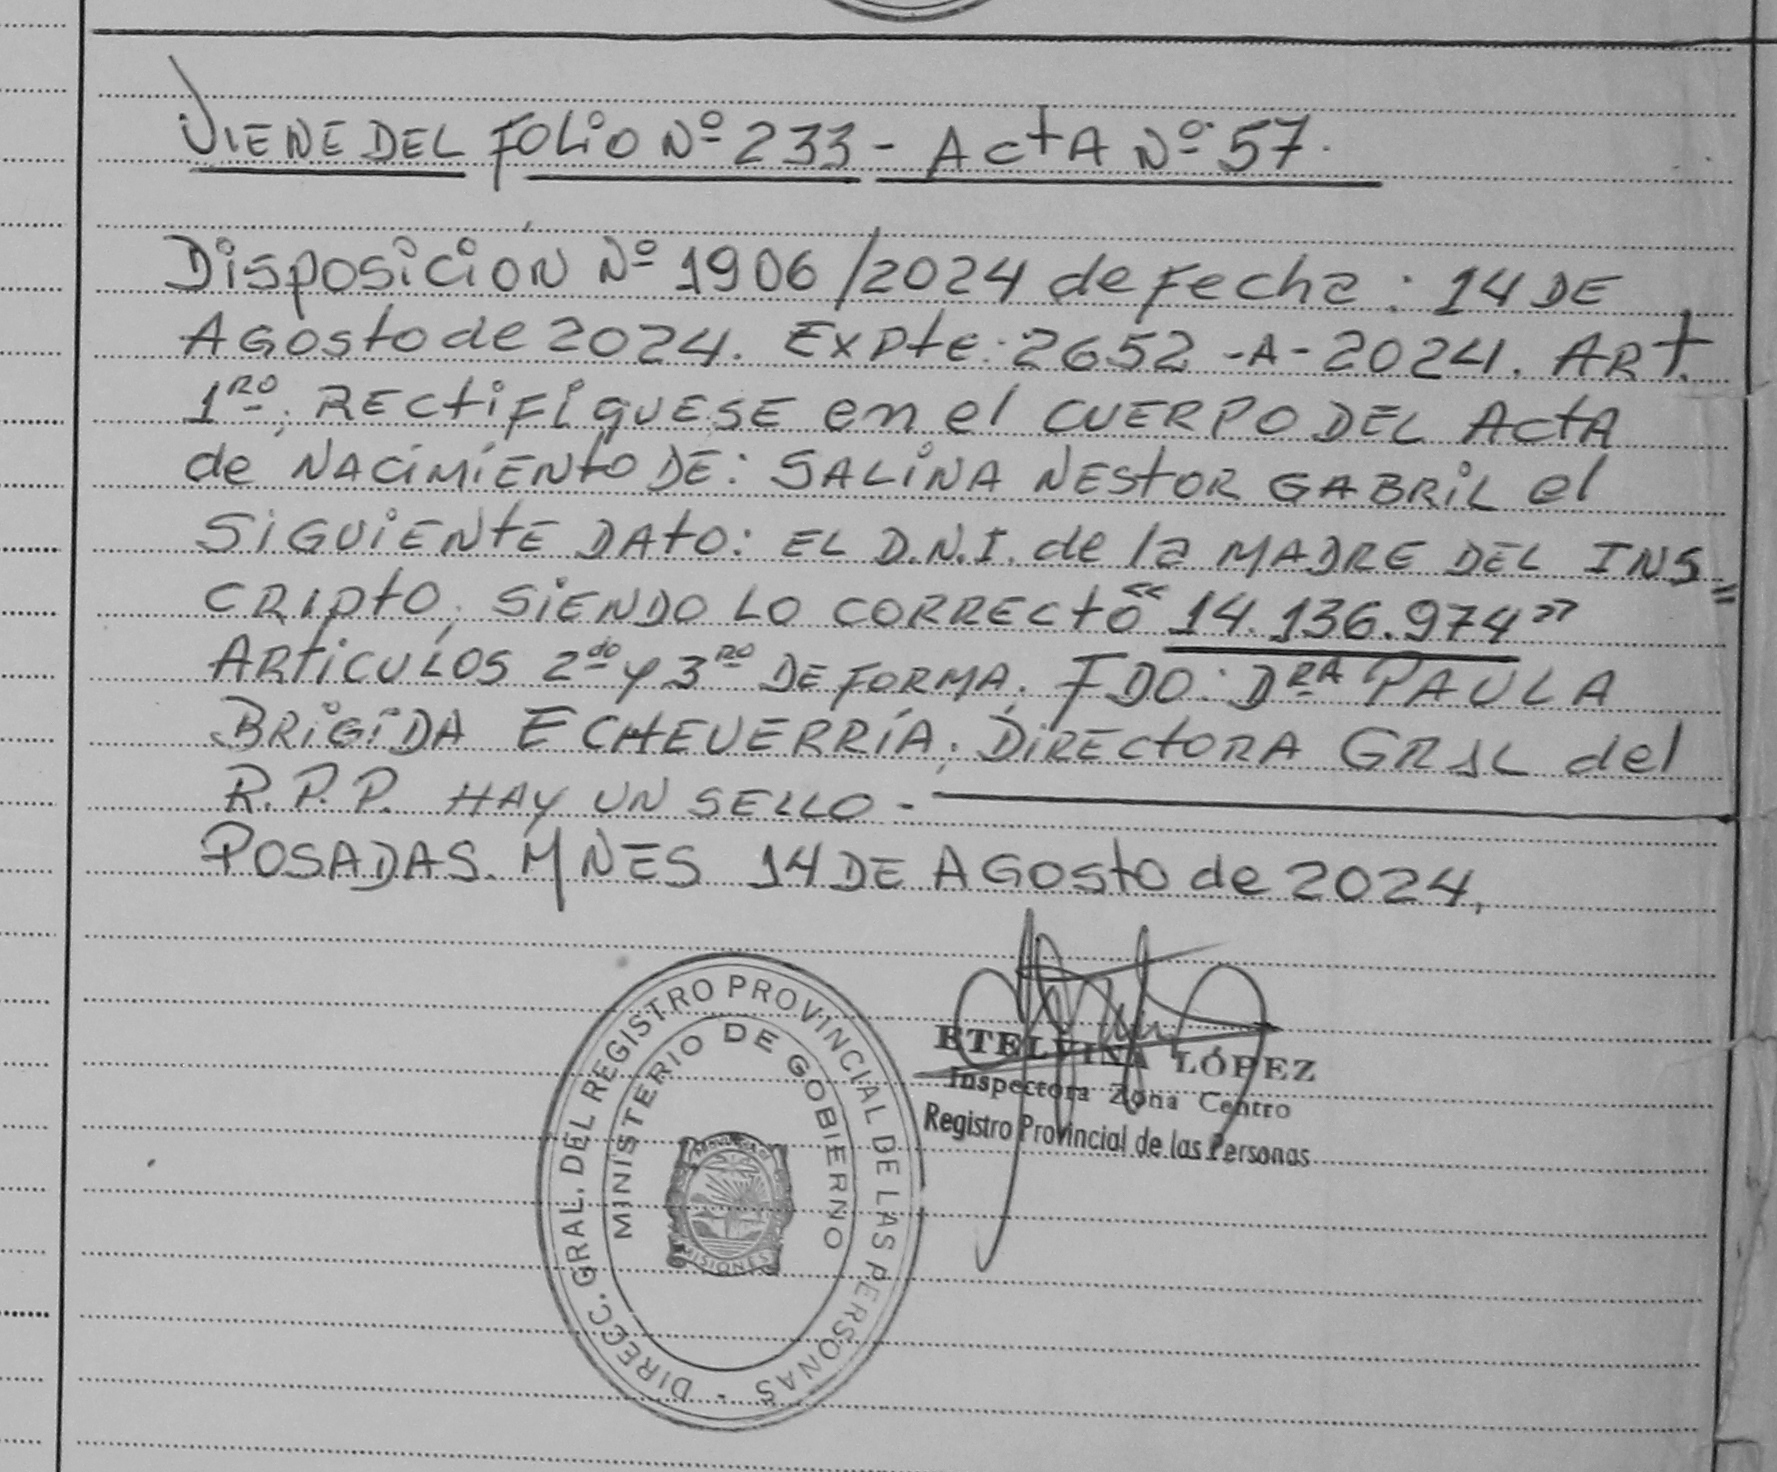 VIENE DEL FOLIO Nº 233 - ACTA Nº 57.
DISPOSICIÓN Nº 1906/2024 de Fecha: 14 DE
AGOSTO de 2024. EXPte: 2652-A-2024. ART.
1RO: RECTIFIQUESE en el CUERPO DEL ACTA
de NACIMIENTO DE: SALINA NESTOR GABRIL el
SIGUIENTE DATO: EL D.N.I. de la MADRE DEL INS=
CRIPTO, SIENDO LO CORRECTO "14.136.974"
ARTICULOS 2do y 3RO DE FORMA. FDO: DRA PAULA
BRIGIDA ECHEVERRÍA, DIRECTORA GRAL del
R.P.P. HAY UN SELLO -
POSADAS. MNES 14 DE AGOSTO de 2024,
DIRECC. GRAL. DEL REGISTRO PROVINCIAL DE LAS PERSONAS -
MINISTERIO DE GOBIERNO
MISIONES
ETELVINA LÓPEZ
Inspectora Zona Centro
Registro Provincial de las Personas